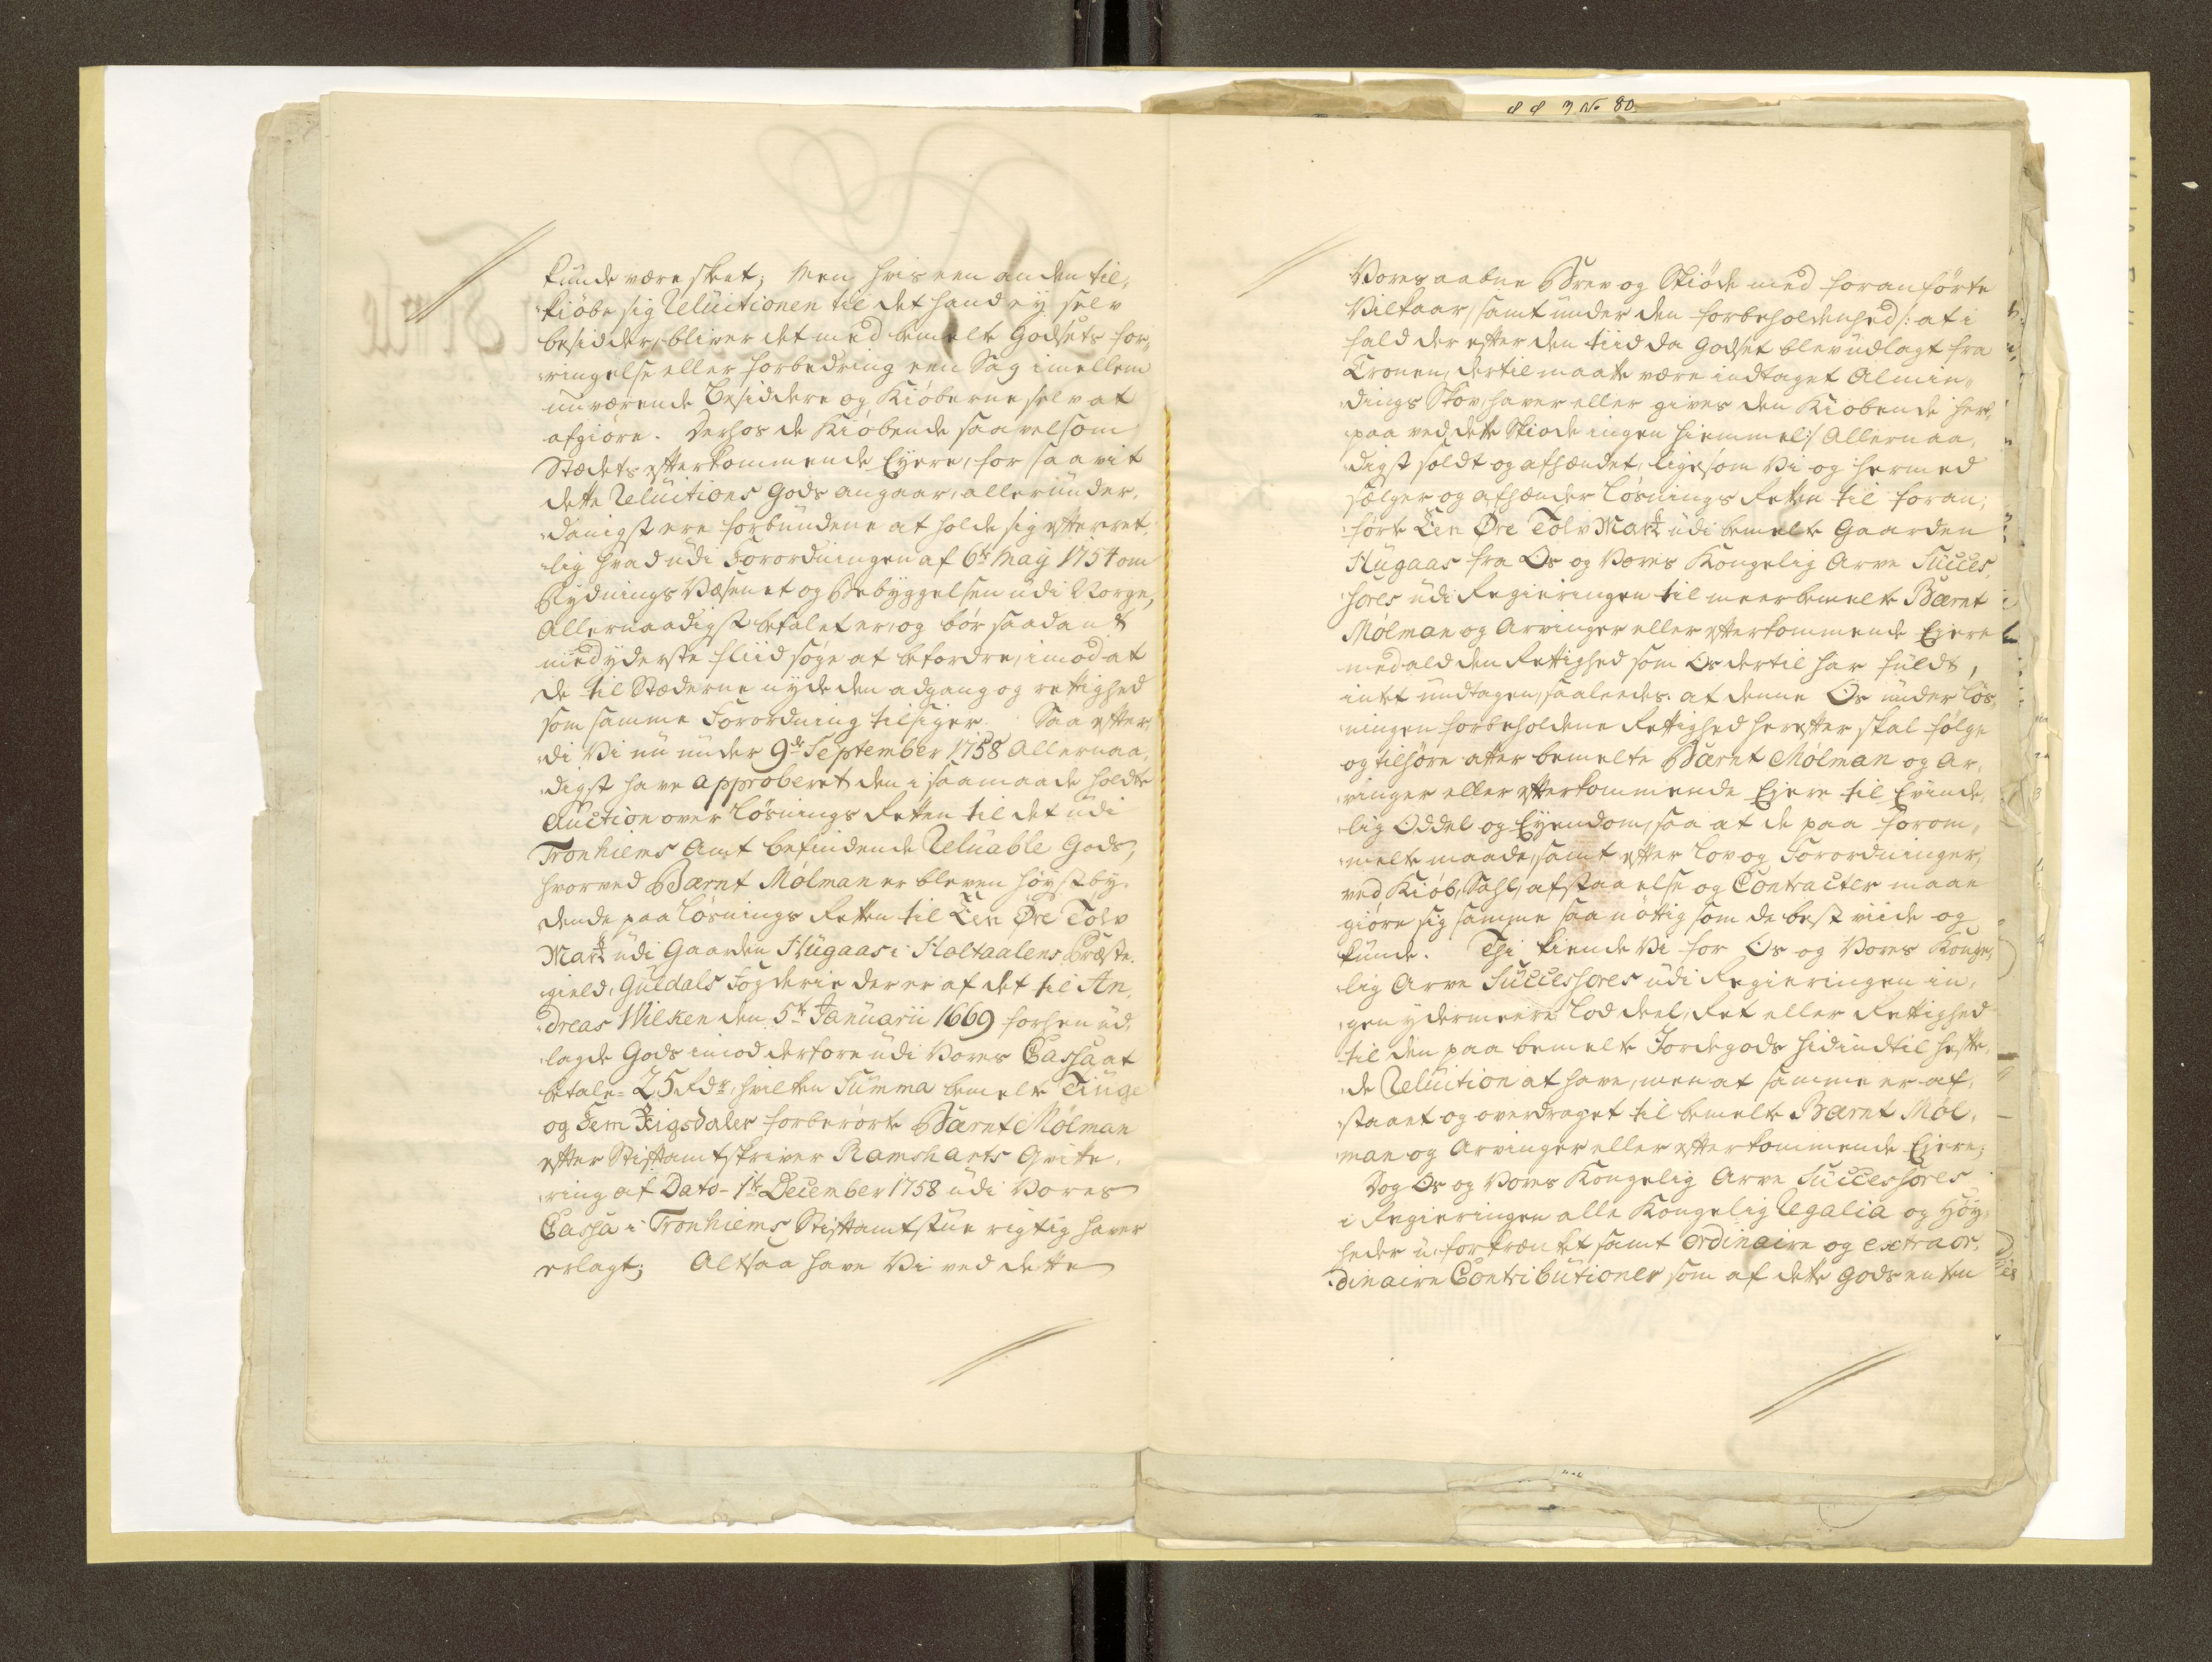 kunde være skeet; Men hvis een anden til,
,kiøbe sig Reluitionen til det hand ey selv
besidder, bliver det med bemelte Godsets for,
,ringelse eller forbedring een Sag imellem
nuværende Besiddere og Kiøberne selv at
afgiøre. Derhos de Kiøbende saavelsom
Stædets efterkommende Eyere, for saavit
dette Reluitions Gods angaar, allerunder,
,danigst ere forbundene at holde sig efterret,
,lig hvad udi Forordningen af 6te May 1754 om
Rydnings Væsenet og Bebyggelsen udi Norge,
Allernaadigst befalet er, og bør saadant
med yderste fliid søge at befordre, imod at
de til Stæderne nyde den adgang og rettighed
som samme Forordning tilsiger. Saa efter,
,di Vi nu under 9de September 1758 Allernaa,
,digst have approberet den i saamaade holdte
Auction over Løsnings Retten til det udi
Tronhiems Amt befindende Reluable Gods,
hvorved Barnt Mølman er bleven høystby,
dende paa Løsnings Retten til Een Øre Tolv
Markl udi Gaarden Hugaas i Holtaalens Præste,
,gield, Guldals Fogderie der er af det til An,
,dreas Wilken den 5te Januarii 1669 forhen ud,
,lagde Gods imod derfore udi Vores Cassa at
betale = 25 Rdr, hvilken Summa bemelte Tiuge
og Fem Rigsdaler forberørte Barnt Mølman
efter Stiftamtskriver Ramsharts Qvite,
,ring af Dato = 1te December 1758 udi Vores
Cassa i Tronhiems Stiftamtstue rigtig haver
erlagt; Altsaa have Vi ved dette
3 No 80
Vores aabne Brev og Skiøde med foranførte
Vilkaar, samt under den forbeholdenhed /: at i
fald der efter den tiid da Godset blev udlagt fra
Cronen, dertil maatte være indtaget Almin,
,dings Skov, haver eller gives den Kiøbende her,
,paa ved dette Skiøde ingen hiemmel :/ Allernaa,
,digst soldt og afhændet, ligesom Vi og hermed
sælger og afhænder Løsnings Retten til foran,
,førte Een Øre Tolv Markl udi bemelte Gaarden
Hugaas fra Os og Vores Kongelig Arve Succes,
,sores udi Regieringen til meerbemelte Barnt
Mølman og Arvinger eller efterkommende Ejere
med ald den Rettighed som Os dertil har fuldt,
intet undtagen, saaleedes at denne Os under Løs,
,ningen forbeholdene Rettighed herefter skal følge
og tilhøre atter bemelte Barnt Mølman og Ar,
,vinger eller efterkommende Ejere til Evinde,
,lig Oddel og Eyendom, saa at de paa forom,
,melte maade, samt efter Lov og Forordninger,
ved Kiøb, Sahl, afstaaelse og Contracter maae
giøre sig samme saa nøttig som de best viide og
kunde. Thi kiende Vi for Os og Vores Konge,
,lig Arve Successores udi Regieringen in,
,gen ydermeere Lod deel, Ret eller Rettighed
til den paa bemelte Jordegods hidindtil hefte,
,de Reluition at have, men at samme er af,
,staaet og overdraget til bemelte Barnt Møl,
,man og Arvinger eller efterkommende Ejere;
Dog Os og Vores Kongelig Arve Successores
i Regieringen alle Kongelig Regalia og Høy,
heder u-forkrænket samt ordinaire og extraor,
,dinaire Contributioner som af dette Gods enten